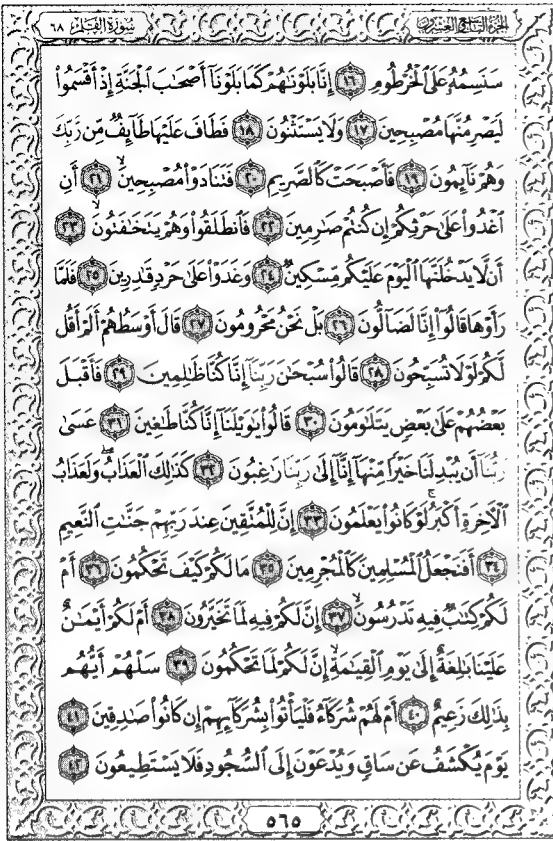 الجزء التاسع والعشرون سورة القلم ٦٨
سَنَسِمُهُۥ عَلَى ٱلْخُرْطُومِ ١٦ إِنَّا بَلَوْنَٰهُمْ كَمَا بَلَوْنَآ أَصْحَٰبَ ٱلْجَنَّةِ إِذْ أَقْسَمُوا۟
لَيَصْرِمُنَّهَا مُصْبِحِينَ ١٧ وَلَا يَسْتَثْنُونَ ١٨ فَطَافَ عَلَيْهَا طَآئِفٌ مِّن رَّبِّكَ
وَهُمْ نَآئِمُونَ ١٩ فَأَصْبَحَتْ كَٱلصَّرِيمِ ٢٠ فَتَنَادَوْا۟ مُصْبِحِينَ ٢١ أَنِ
ٱغْدُوا۟ عَلَىٰ حَرْثِكُمْ إِن كُنتُمْ صَٰرِمِينَ ٢٢ فَٱنطَلَقُوا۟ وَهُمْ يَتَخَٰفَتُونَ ٢٣
أَن لَّا يَدْخُلَنَّهَا ٱلْيَوْمَ عَلَيْكُم مِّسْكِينٌ ٢٤ وَغَدَوْا۟ عَلَىٰ حَرْدٍ قَٰدِرِينَ ٢٥ فَلَمَّا
رَأَوْهَا قَالُوٓا۟ إِنَّا لَضَآلُّونَ ٢٦ بَلْ نَحْنُ مَحْرُومُونَ ٢٧ قَالَ أَوْسَطُهُمْ أَلَمْ أَقُل
لَّكُمْ لَوْلَا تُسَبِّحُونَ ٢٨ قَالُوا۟ سُبْحَٰنَ رَبِّنَآ إِنَّا كُنَّا ظَٰلِمِينَ ٢٩ فَأَقْبَلَ
بَعْضُهُمْ عَلَىٰ بَعْضٍ يَتَلَٰوَمُونَ ٣٠ قَالُوا۟ يَٰوَيْلَنَآ إِنَّا كُنَّا طَٰغِينَ ٣١ عَسَىٰ
رَبُّنَآ أَن يُبْدِلَنَا خَيْرًا مِّنْهَآ إِنَّآ إِلَىٰ رَبِّنَا رَٰغِبُونَ ٣٢ كَذَٰلِكَ ٱلْعَذَابُ ۖ وَلَعَذَابُ
ٱلْءَاخِرَةِ أَكْبَرُ ۚ لَوْ كَانُوا۟ يَعْلَمُونَ ٣٣ إِنَّ لِلْمُتَّقِينَ عِندَ رَبِّهِمْ جَنَّٰتِ ٱلنَّعِيمِ
٣٤ أَفَنَجْعَلُ ٱلْمُسْلِمِينَ كَٱلْمُجْرِمِينَ ٣٥ مَا لَكُمْ كَيْفَ تَحْكُمُونَ ٣٦ أَمْ
لَكُمْ كِتَٰبٌ فِيهِ تَدْرُسُونَ ٣٧ إِنَّ لَكُمْ فِيهِ لَمَا تَخَيَّرُونَ ٣٨ أَمْ لَكُمْ أَيْمَٰنٌ
عَلَيْنَا بَٰلِغَةٌ إِلَىٰ يَوْمِ ٱلْقِيَٰمَةِ ۙ إِنَّ لَكُمْ لَمَا تَحْكُمُونَ ٣٩ سَلْهُمْ أَيُّهُم
بِذَٰلِكَ زَعِيمٌ ٤٠ أَمْ لَهُمْ شُرَكَآءُ فَلْيَأْتُوا۟ بِشُرَكَآئِهِمْ إِن كَانُوا۟ صَٰدِقِينَ ٤١
يَوْمَ يُكْشَفُ عَن سَاقٍ وَيُدْعَوْنَ إِلَى ٱلسُّجُودِ فَلَا يَسْتَطِيعُونَ ٤٢
٥٦٥